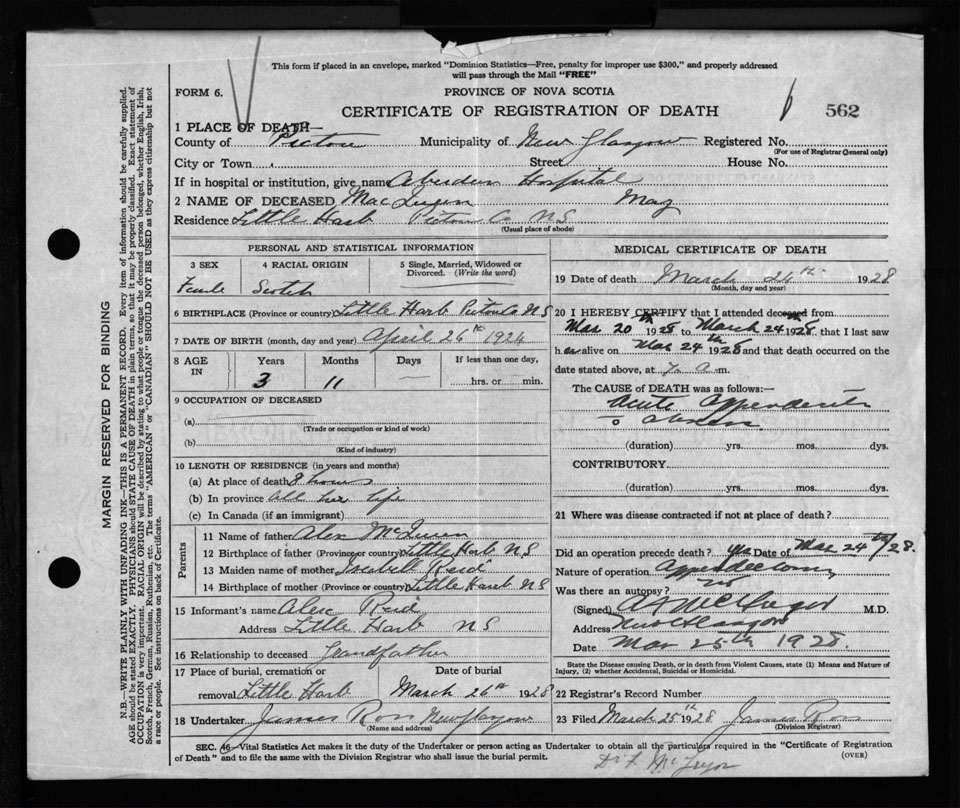 This form if placed in an envelope, marked "Dominion Statistics—Free, penalty for improper use $300," and properly addressed
will pass through the Mail "FREE"
FORM 6.
PROVINCE OF NOVA SCOTIA
CERTIFICATE OF REGISTRATION OF DEATH
562
1 PLACE OF DEATH—
County of Pictou Municipality of New Glasgow Registered No.
(For use of Registrar General only)
City or Town Street House No.
If in hospital or institution, give name Aberdeen Hospital
2 NAME OF DECEASED MacQueen May
Residence Little Harb Pictou Co NS
(Usual place of abode)
PERSONAL AND STATISTICAL INFORMATION
3 SEX 4 RACIAL ORIGIN 5 Single, Married, Widowed or
Divorced. (Write the word)
Female Scotch
6 BIRTHPLACE (Province or country) Little Harb Pictou Co NS
7 DATE OF BIRTH (month, day and year) April 26th 1924
8 AGE IN Years Months Days If less than one day,
3 11 — hrs. or min.
9 OCCUPATION OF DECEASED
(a)
(Trade or occupation or kind of work)
(b)
(Kind of industry)
10 LENGTH OF RESIDENCE (in years and months)
(a) At place of death 8 hours
(b) In province all her life
(c) In Canada (if an immigrant)
Parents
11 Name of father Alex McQueen
12 Birthplace of father (Province or country) Little Harb NS
13 Maiden name of mother Isabell Reid
14 Birthplace of mother (Province or country) Little Harb NS
15 Informant's name Alex Reid
Address Little Harb NS
16 Relationship to deceased Grandfather
17 Place of burial, cremation or Date of burial
removal Little Harb March 26th 1928
18 Undertaker James Ross New Glasgow
(Name and address)
MEDICAL CERTIFICATE OF DEATH
19 Date of death March 24th 1928
(Month, day and year)
20 I HEREBY CERTIFY that I attended deceased from
Mar 20th 1928 to March 24th 1928, that I last saw
her alive on Mar 24th 1928 and that death occurred on the
date stated above, at 7 a m.
The CAUSE OF DEATH was as follows:—
Acute Appendicitis
c Abscess
(duration) yrs. mos. dys.
CONTRIBUTORY
(duration) yrs. mos. dys.
21 Where was disease contracted if not at place of death?
Did an operation precede death? yes Date of Mar 24th/28.
Nature of operation Appendectomy
Was there an autopsy? no
(Signed) McGregor M.D.
Address New Glasgow
Date Mar 25th 1928.
State the Disease causing Death, or in death from Violent Causes, state (1) Means and Nature of
Injury, (2) whether Accidental, Suicidal or Homicidal.
22 Registrar's Record Number
23 Filed March 25th 1928 James Ross
(Division Registrar)
SEC. 46—Vital Statistics Act makes it the duty of the Undertaker or person acting as Undertaker to obtain all the particulars required in the "Certificate of Registration
of Death" and to file the same with the Division Registrar who shall issue the burial permit.
(OVER)
MARGIN RESERVED FOR BINDING
N.B.—WRITE PLAINLY WITH UNFADING INK—THIS IS A PERMANENT RECORD. Every item of information should be carefully supplied.
AGE should be stated EXACTLY. PHYSICIANS should STATE CAUSE OF DEATH in plain terms, so that it may be properly classified. Exact statement of
OCCUPATION is very important. RACIAL ORIGIN will be described by stating to what people or tongue the deceased person belonged, whether English, Irish,
Scotch, French, German, Russian, Ruthenian, etc. The terms "AMERICAN" or "CANADIAN" SHOULD NOT BE USED as they express citizenship but not
a race or people. See instructions on back of Certificate.